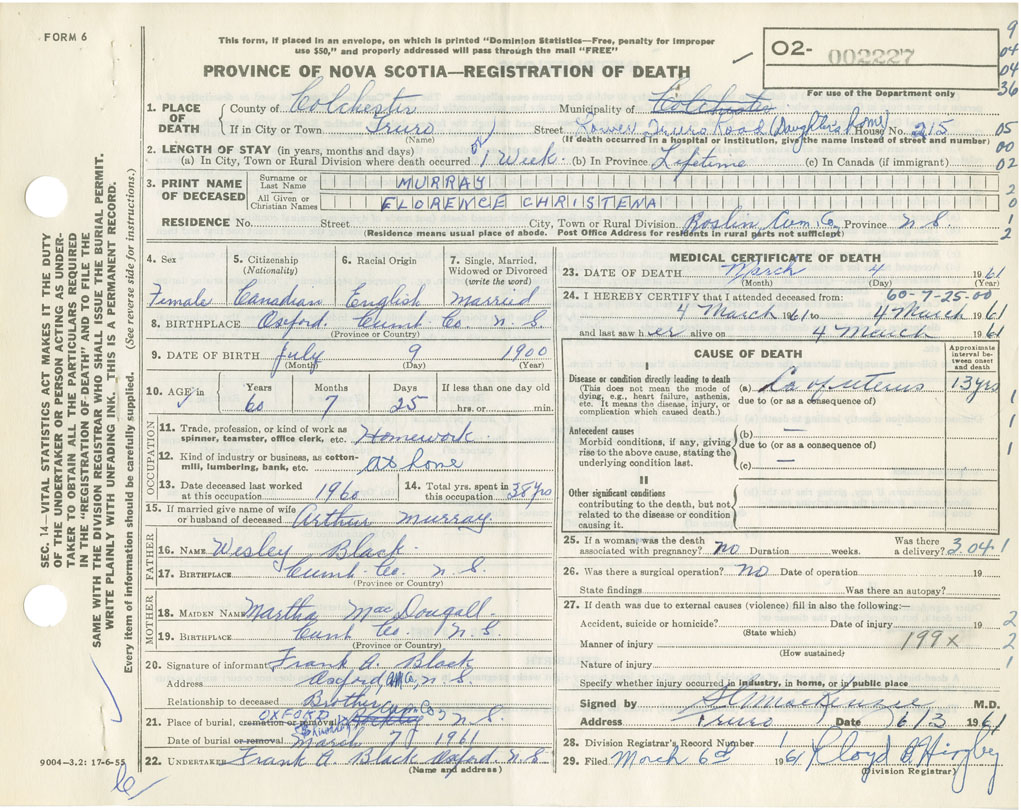 FORM 6
This form, if placed in an envelope, on which is printed "Dominion Statistics—Free, penalty for improper
use $50," and properly addressed will pass through the mail "FREE"
PROVINCE OF NOVA SCOTIA—REGISTRATION OF DEATH
O2- 002227
For use of the Department only
9
04
04
36
05
00
02
2
0
1
2
1. PLACE OF DEATH
County of Colchester Municipality of Colchester
If in City or Town Truro Street Lower Truro Road (Daughter's home) House No. 215
(Name) (If death occurred in a hospital or institution, give the name instead of street and number)
2. LENGTH OF STAY (in years, months and days)
(a) In City, Town or Rural Division where death occurred 1 Week (b) In Province Lifetime (c) In Canada (if immigrant)
3. PRINT NAME OF DECEASED
Surname or Last Name MURRAY
All Given or Christian Names FLORENCE CHRISTENA
RESIDENCE No. Street City, Town or Rural Division Roslin Cum. Co. Province N.S.
(Residence means usual place of abode. Post Office Address for residents in rural parts not sufficient)
4. Sex
Female
5. Citizenship (Nationality)
Canadian
6. Racial Origin
English
7. Single, Married, Widowed or Divorced (write the word)
Married
8. BIRTHPLACE Oxford. Cumb. Co. N.S.
(Province or Country)
9. DATE OF BIRTH July 9 1900
(Month) (Day) (Year)
10. AGE in
Years Months Days If less than one day old
60 7 25 hrs. or min.
OCCUPATION
11. Trade, profession, or kind of work as spinner, teamster, office clerk, etc. Homework
12. Kind of industry or business, as cotton-mill, lumbering, bank, etc. at home
13. Date deceased last worked at this occupation 1960
14. Total yrs. spent in this occupation 38 yrs
15. If married give name of wife or husband of deceased Arthur Murray
FATHER
16. NAME Wesley Black
17. BIRTHPLACE Cumb. Co. N.S.
(Province or Country)
MOTHER
18. MAIDEN NAME Martha MacDougall
19. BIRTHPLACE Cumb. Co. N.S.
(Province or Country)
20. Signature of informant Frank A. Black
Address Oxford, N.S.
Relationship to deceased Brother
21. Place of burial, cremation or removal OXFORD Cum Co N.S.
Date of burial or removal March 7, 1961
22. UNDERTAKER Frank A. Black Oxford N.S.
(Name and address)
MEDICAL CERTIFICATE OF DEATH
23. DATE OF DEATH March 4 1961
(Month) (Day) (Year)
24. I HEREBY CERTIFY that I attended deceased from: 60-7-25-00
4 March 1961 to 4 March 1961
and last saw her alive on 4 March 1961
CAUSE OF DEATH
Approximate interval between onset and death
I
Disease or condition directly leading to death
(This does not mean the mode of dying, e.g., heart failure, asthenia, etc. It means the disease, injury, or complication which caused death.)
(a) Ca of uterus 13 yrs
due to (or as a consequence of)
Antecedent causes
Morbid conditions, if any, giving rise to the above cause, stating the underlying condition last.
(b) —
due to (or as a consequence of)
(c) —
II
Other significant conditions
contributing to the death, but not related to the disease or condition causing it.
1
1
1
25. If a woman, was the death associated with pregnancy? no Duration weeks. Was there a delivery? 3.04 1
26. Was there a surgical operation? no Date of operation 19
State findings Was there an autopsy?
27. If death was due to external causes (violence) fill in also the following:—
Accident, suicide or homicide? Date of injury 19 2
(State which)
Manner of injury 199x 2
(How sustained)
Nature of injury 1
Specify whether injury occurred in industry, in home, or in public place
Signed by M.D.
Address Truro Date 6/3 1961
28. Division Registrar's Record Number 1
29. Filed March 6th 1961
(Division Registrar)
SEC. 14—VITAL STATISTICS ACT MAKES IT THE DUTY
OF THE UNDERTAKER OR PERSON ACTING AS UNDER-
TAKER TO OBTAIN ALL THE PARTICULARS REQUIRED
IN THE "REGISTRATION OF DEATH" AND TO FILE THE
SAME WITH THE DIVISION REGISTRAR WHO SHALL ISSUE THE BURIAL PERMIT.
WRITE PLAINLY WITH UNFADING INK. THIS IS A PERMANENT RECORD.
Every item of information should be carefully supplied. (See reverse side for instructions.)
9004-3.2: 17-6-55